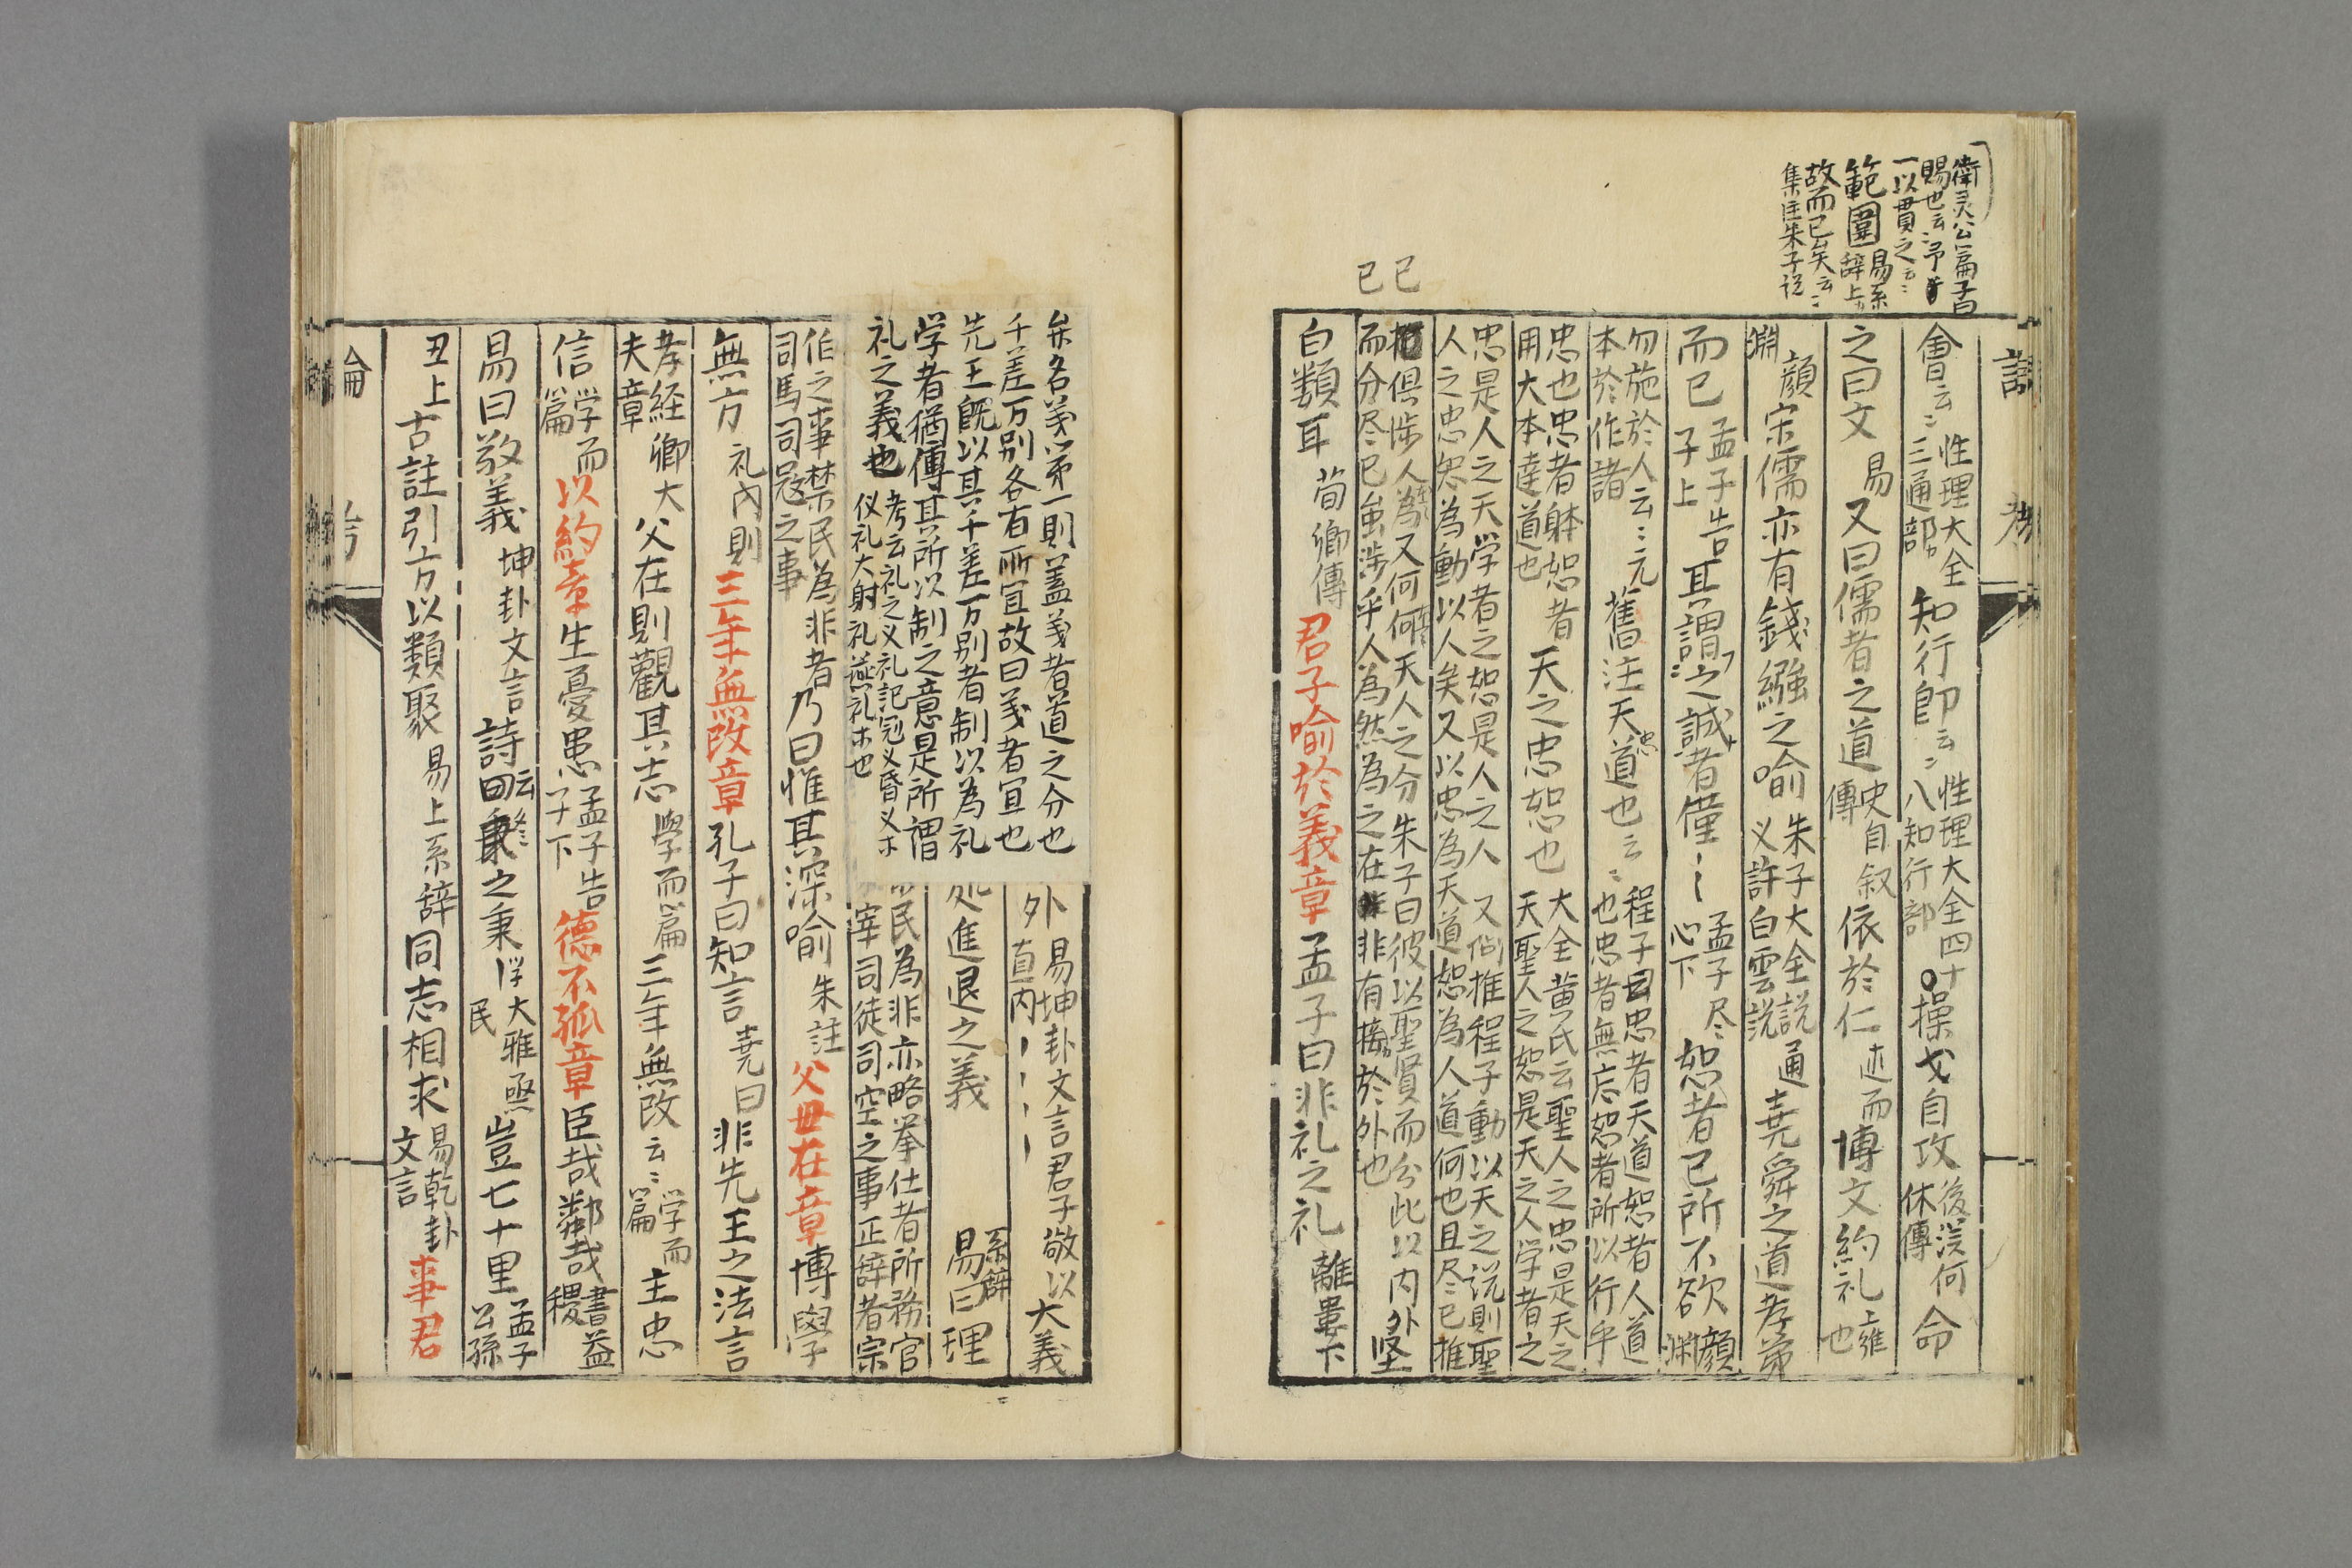 衛灵公篇子曰
賜也云〻予
一以貫之云〻
範圍易系辞上
故而已矣云〻
集注朱子说
已
已
會云〻性理大全三通部知行卽云〻性理大全四十八知行部操戈自攻後漢何休傳命
之曰文易又曰儒者之道史自叙傳依於仁述而博文約礼上雍也
顔淵宋儒亦有錢繦之喻朱子大全説义許白雲説通堯舜之道孝弟
而已孟子告子上其謂之誠者僅〻孟子尽心下恕者己所不欲顔淵
勿施於人云〻元本於作諸舊注天道也云〻程子曰忠者天道恕者人道也忠者無忘恕者所以行乎
忠也忠者躰恕者用大本達道也天之忠恕也大全黄氏云聖人之忠是天之天聖人之恕是天之人学者之
忠是人之天学者之恕是人之人又倘推程子動以天之说則聖
人之忠恕為動以人矣又以忠為天道恕為人道何也且尽己推
俱涉人為又何天人之分朱子曰彼以聖賢而分此以内外坚
而分尽已虽涉乎人為然為之在非有接於外也
自類耳荀卿傳君子喻於義章孟子曰非礼之礼離婁下
弁名義第一則蓋義者道之分也
千差万别各有所宜故曰義者宜也
先王既以其千差万别者制以為礼
学者猶傳其所以制之意是所謂
礼之義也考云礼之义礼記冠义昏义
仪礼大射礼燕礼木也
外易坤卦文言君子敬以直内大義
進退之義系辞易曰理
民為非亦略挙仕者所務官
宰司徒司空之事正辞者宗
伯之事禁民為非者司馬司冦之事乃曰惟其深喻朱註父毋在章博學
無方礼内則三年無改章孔子曰知言尭曰非先王之法言
孝経卿大夫章父在則觀其志學而篇三年無改云〻学而篇主忠
信学而篇以約章生憂患孟子告子下德不孤章臣哉鄰哉書益稷
易曰敬義坤卦文言詩曰之秉大雅烝民豈七十里孟子公孫
丑上古註引方以類聚易上系辞同志相求易乾卦文言事君